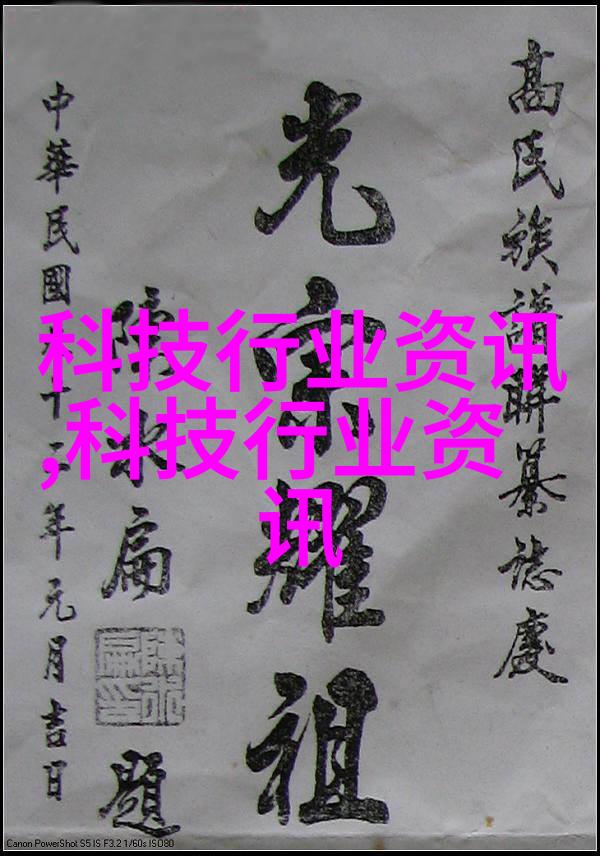 高氏族譜聯纂誌慶
光宗耀祖
陳水扁
陳水
扁印
題
中華民國九十二年元月吉日
科技行业资讯
,科技行业资
讯
Canon PowerShot S5 IS F3.2 1/60s ISO80